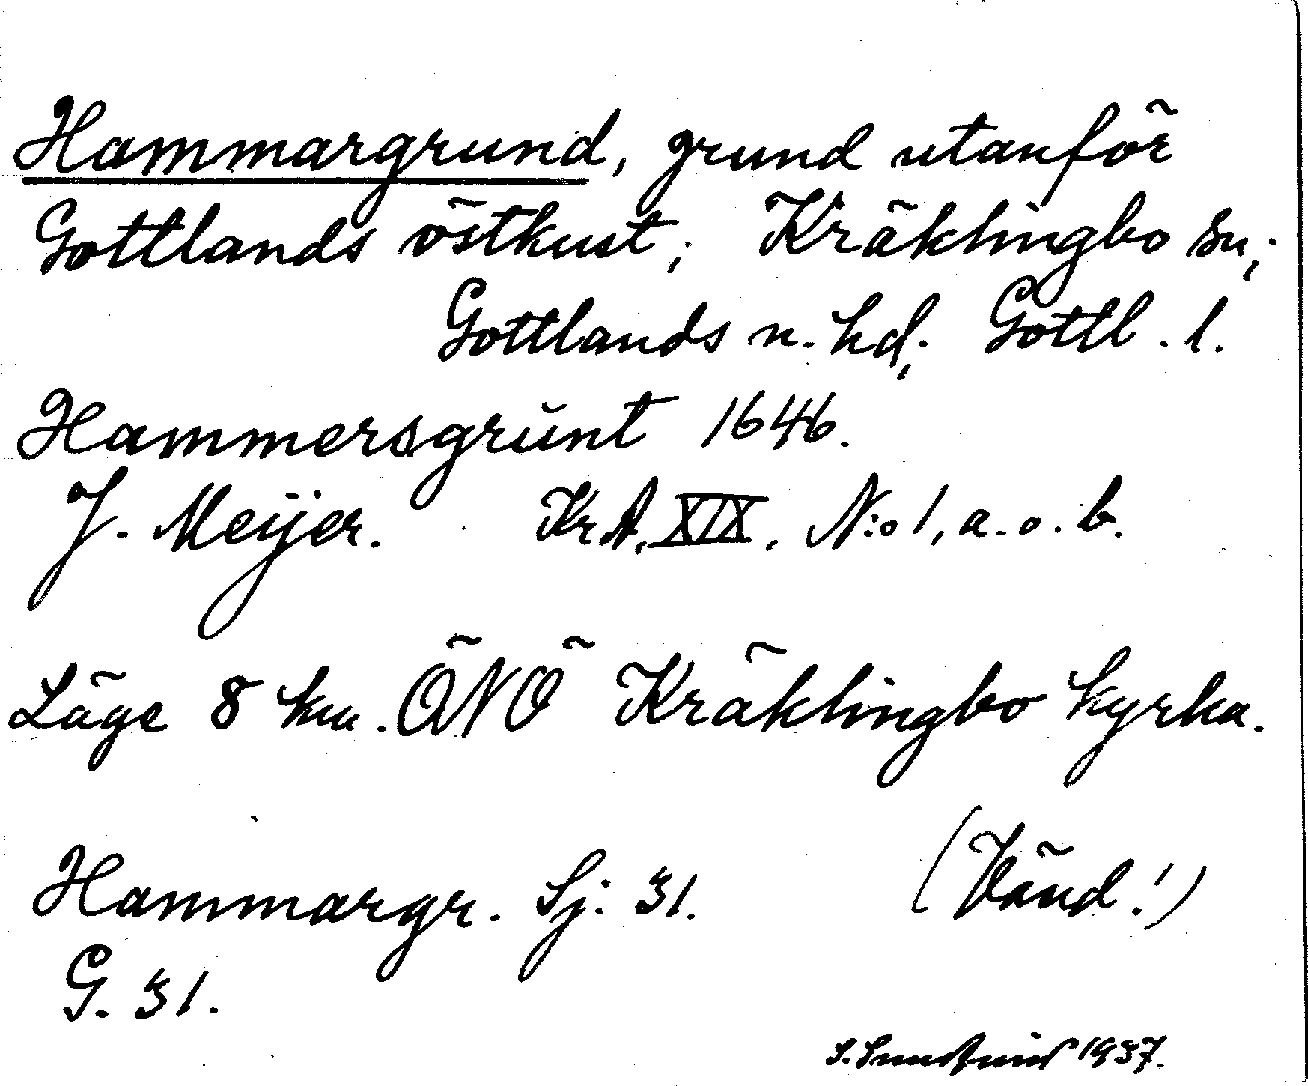 Hammargrund, grund utanför
Gottlands östkust; Kräklingbo sn;
Gottlands n. hd; Gottl. l.
Hammersgrŭnt 1646.
J. Meijer. KrA, XIX, N:o 1, a. o. b.
Läge 8 km. ÖNÖ Kräklingbo kyrka.
Hammargr. Sj. 31. (Vänd!)
G. 31.
1937.